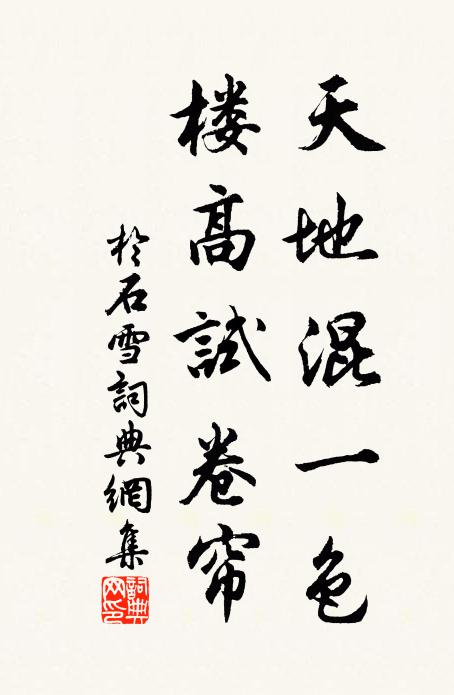 天地混一色
楼高試卷帘
於石雪詞典網集
詞典網印